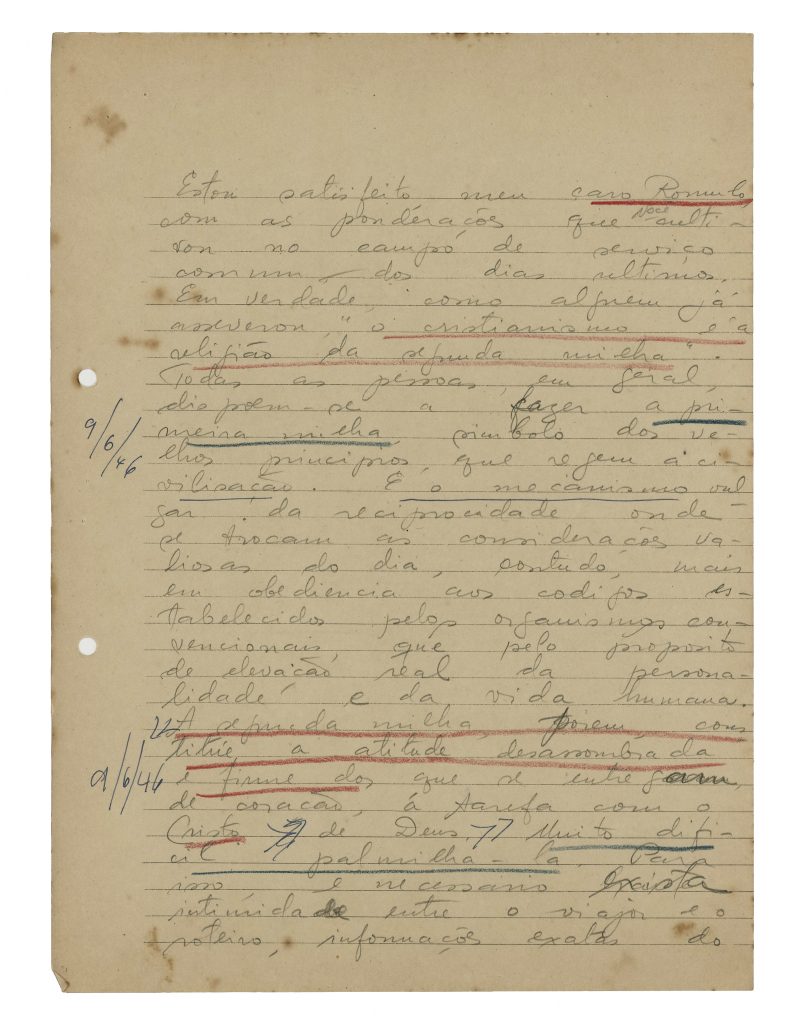 Estou satisfeito, meu caro Romulo,
com as ponderações que você culti-
vou no campo de serviço
comum dos dias ultimos.
Em verdade, como alguem já
asseverou, "o cristianismo é a
religião da segunda milha".
Todas as pessoas, em geral,
dispoem-se a fazer a pri-
9/6/46
meira milha, simbolo dos ve-
lhos principios, que regem a ci-
vilisação. É o mecanismo vul
gar da reciprocidade onde
se trocam as considerações va-
liosas do dia, contudo, mais
em obediencia aos codigos es-
tabelecidos pelos organismos con-
vencionais, que pelo proposito
de elevação real da persona-
lidade e da vida humana.
A segunda milha, porem, cons
titue a atitude desassombrada
9/6/46
e firme dos que se entregam,
de coração, á tarefa com o
Cristo de Deus. Muito difi-
cil palmilha-la. Para
isso, é necessario exista
intimidade entre o viajor e o
roteiro, informações exatas do